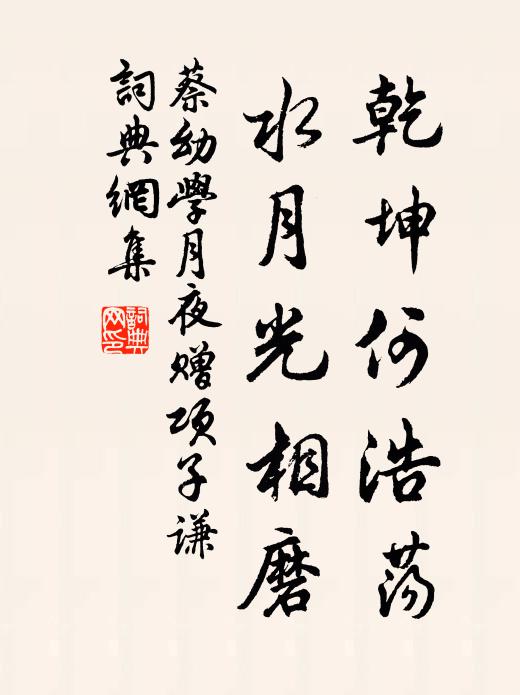 乾坤何浩荡
水月光相磨
蔡幼學月夜赠項子谦
詞典網集
詞典网印